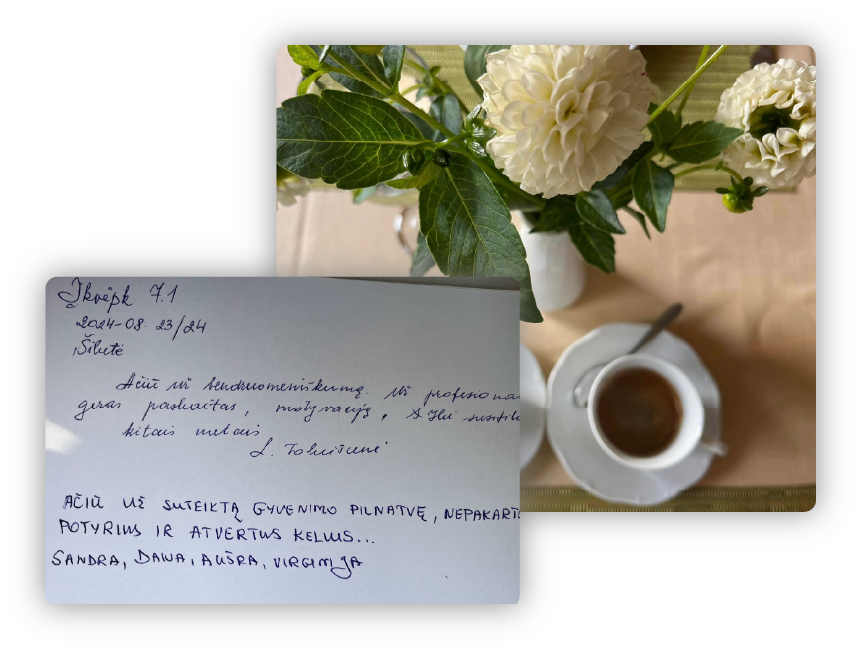 Įkvėpk 7.1
2024-08-23/24
Šilutė
Ačiū už bendruomeniškumą. Už
geras paskaitas, motyvaciją,
kitais metais
L.
AČIŪ UŽ SUTEIKTĄ GYVENIMO PILNATVĘ,
POTYRIUS IR ATVERTUS KELIUS...
SANDRA, DAIVA, AUŠRA, VIRGINIJA